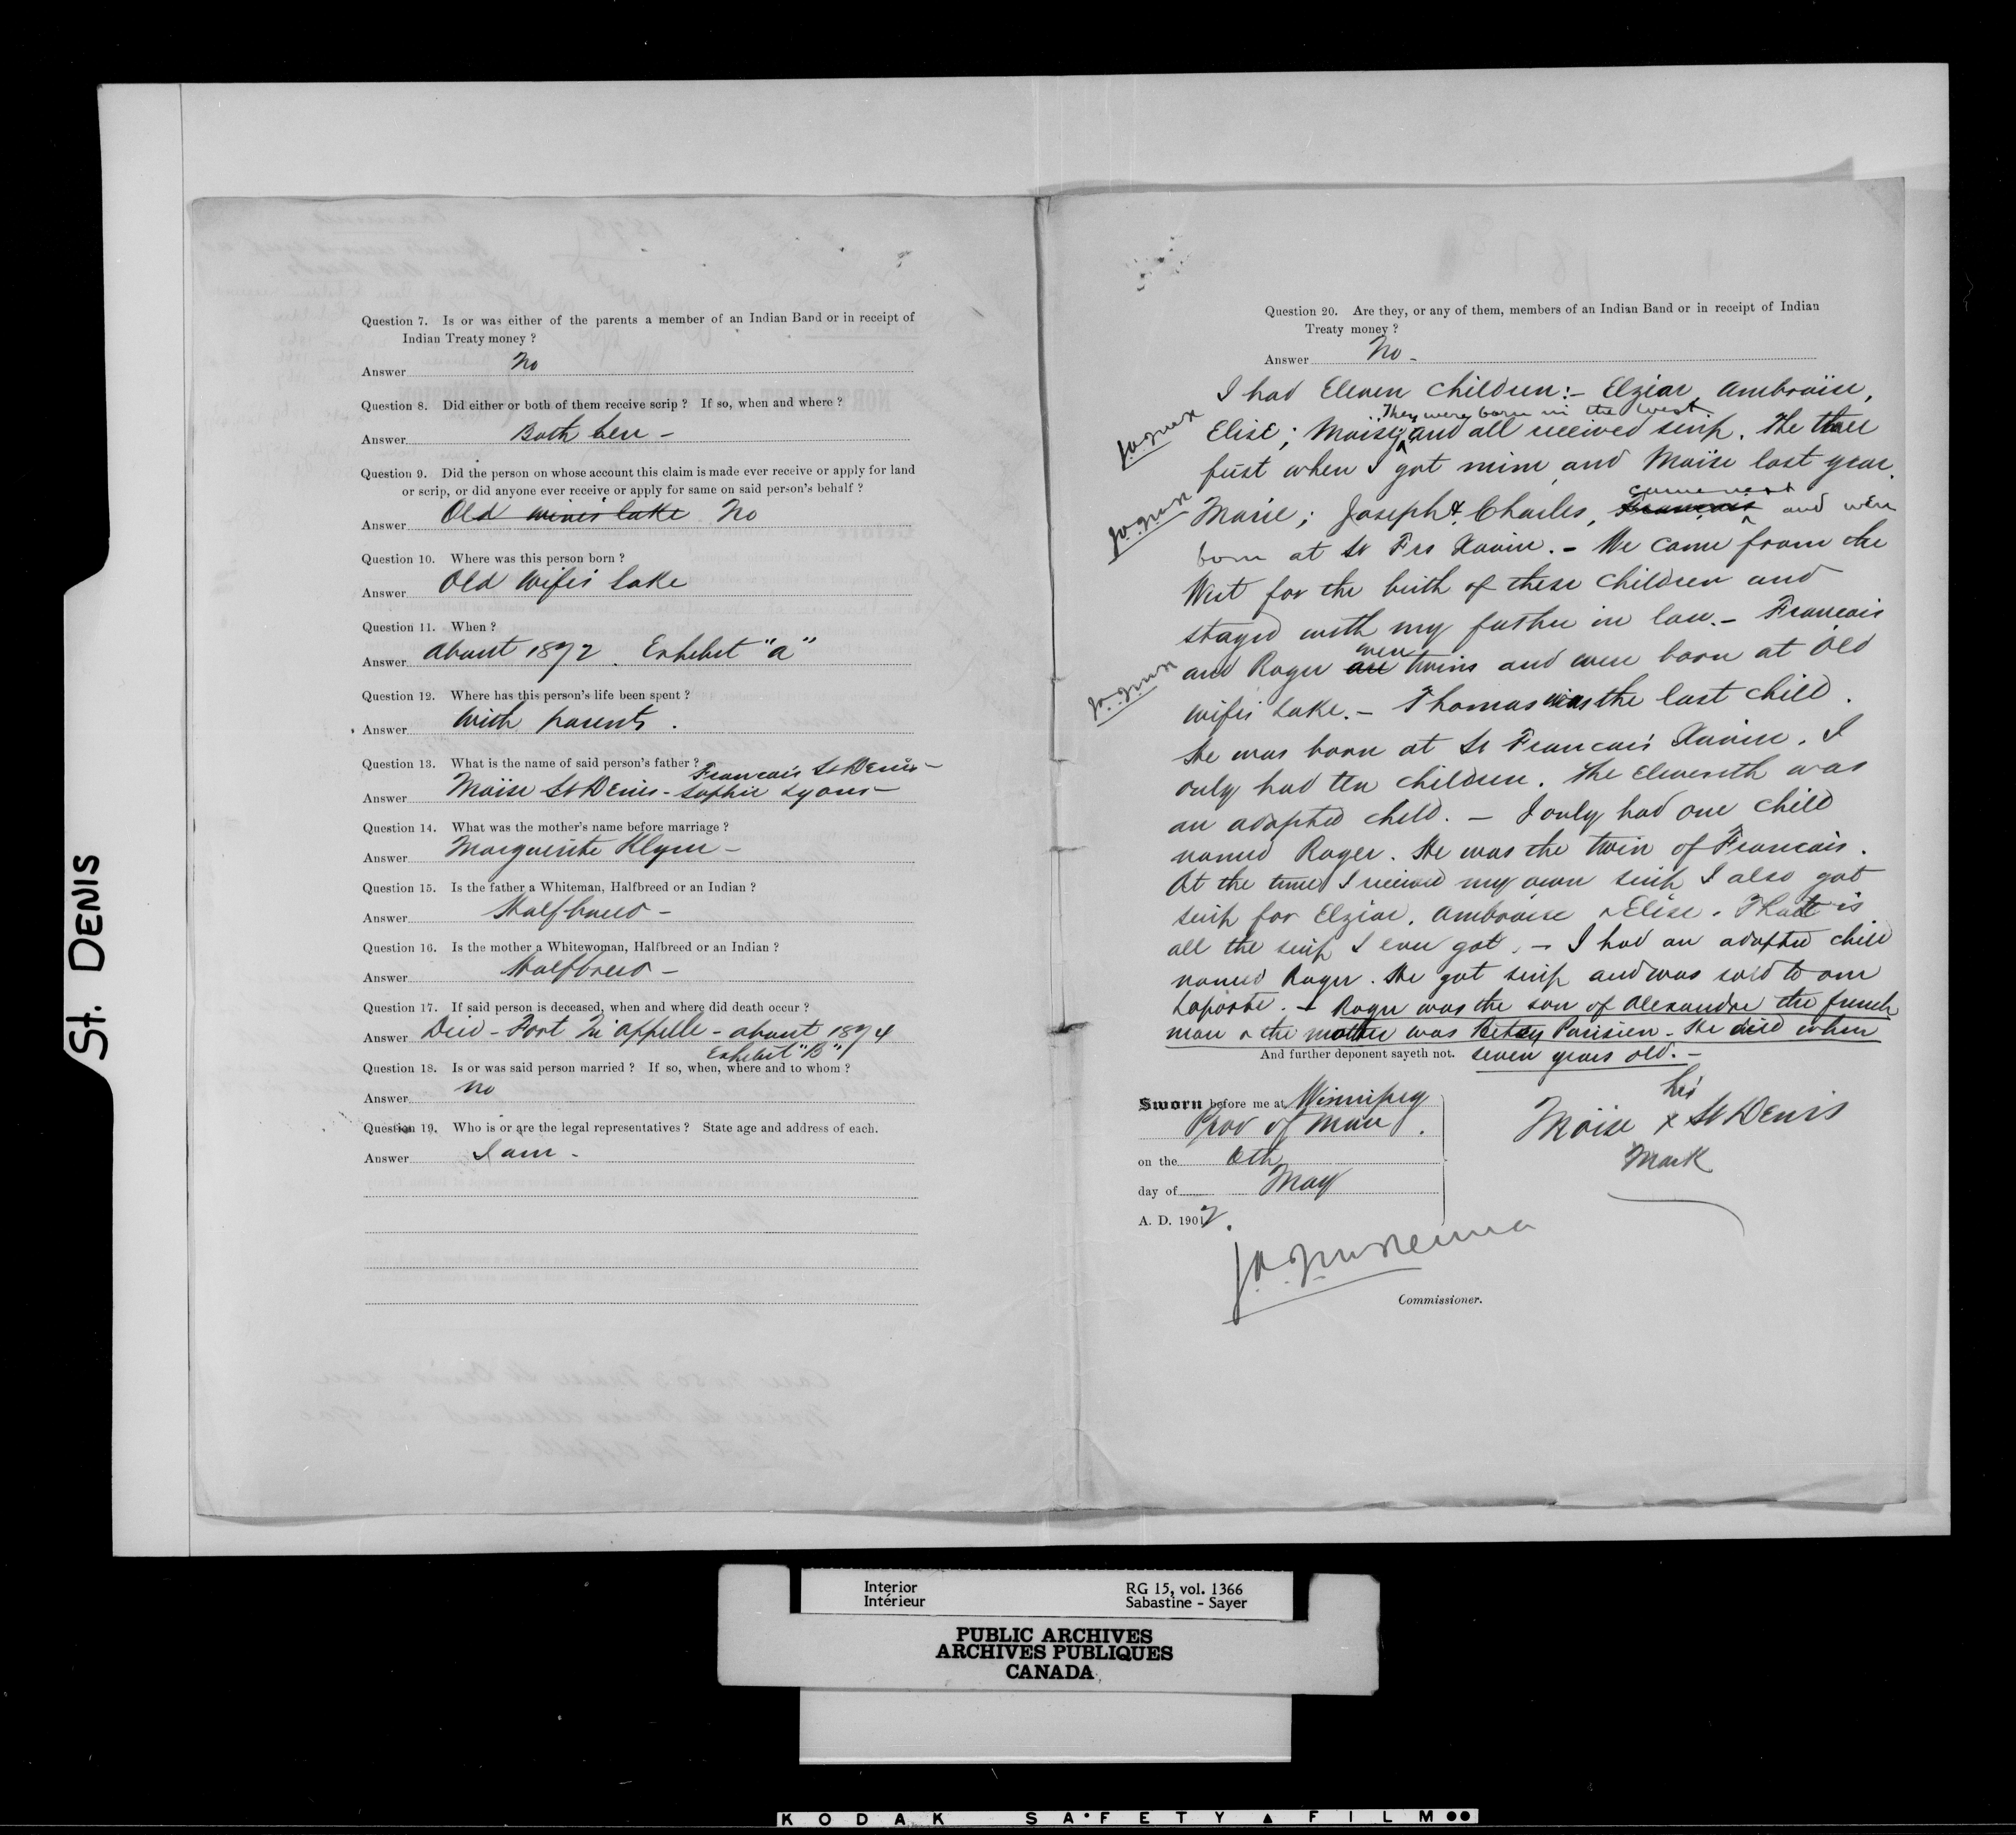 St. DENIS
Question 7. Is or was either of the parents a member of an Indian Band or in receipt of
Indian Treaty money ?
Answer No
Question 8. Did either or both of them receive scrip ? If so, when and where ?
Answer Both here -
Question 9. Did the person on whose account this claim is made ever receive or apply for land
or scrip, or did anyone ever receive or apply for same on said person's behalf ?
Answer Old wives lake No
Question 10. Where was this person born ?
Answer Old Wifes Lake
Question 11. When ?
Answer about 1872. Exhibit "a"
Question 12. Where has this person's life been spent ?
Answer With parents.
Question 13. What is the name of said person's father ?
Francois St Denis -
Answer Moïse St Denis - Sophie Lyons -
Question 14. What was the mother's name before marriage ?
Answer Marguerite Klyne -
Question 15. Is the father a Whiteman, Halfbreed or an Indian ?
Answer Halfbreed -
Question 16. Is the mother a Whitewoman, Halfbreed or an Indian ?
Answer Halfbreed -
Question 17. If said person is deceased, when and where did death occur ?
Answer Died - Fort Qu'appelle - about 1874
Exhibit "B"
Question 18. Is or was said person married ? If so, when, where and to whom ?
Answer no
Question 19. Who is or are the legal representatives ? State age and address of each.
Answer I am -
Question 20. Are they, or any of them, members of an Indian Band or in receipt of Indian
Treaty money ?
Answer No -
I had Eleven children :- Elziar, Ambroise,
They were born in the West
Elise ; Moise, and all received scrip. The three
first when I got mine and Moïse last year.
came next
Marie ; Joseph & Charles, Francois and were
born at St Frs Xavier. - We came from the
West for the birth of these children and
stayed with my father in law. - Francois
were
and Roger are twins and were born at Old
wifes Lake. - Thomas was the last child.
He was born at St Francois Xavier. I
only had ten children. The eleventh was
an adopted child. - I only had one child
named Roger. He was the twin of Francois.
At the time I received my own scrip I also got
scrip for Elziar, Ambroise & Elise. That is
all the scrip I ever got. - I had an adopted child
named Roger. He got scrip and was sold to one
Laporte. - Roger was the son of Alexandre the french
man & the mother was Betsy Parisien - He died when
And further deponent sayeth not. seven years old. -
Sworn before me at Winnipeg
Prov of Man.
on the 8th
day of May
A. D. 1902.
his
Moïse x St Denis
Mark
Commissioner.
Interior
Intérieur
RG 15, vol. 1366
Sabastine - Sayer
PUBLIC ARCHIVES
ARCHIVES PUBLIQUES
CANADA
KODAK SAFETY FILM